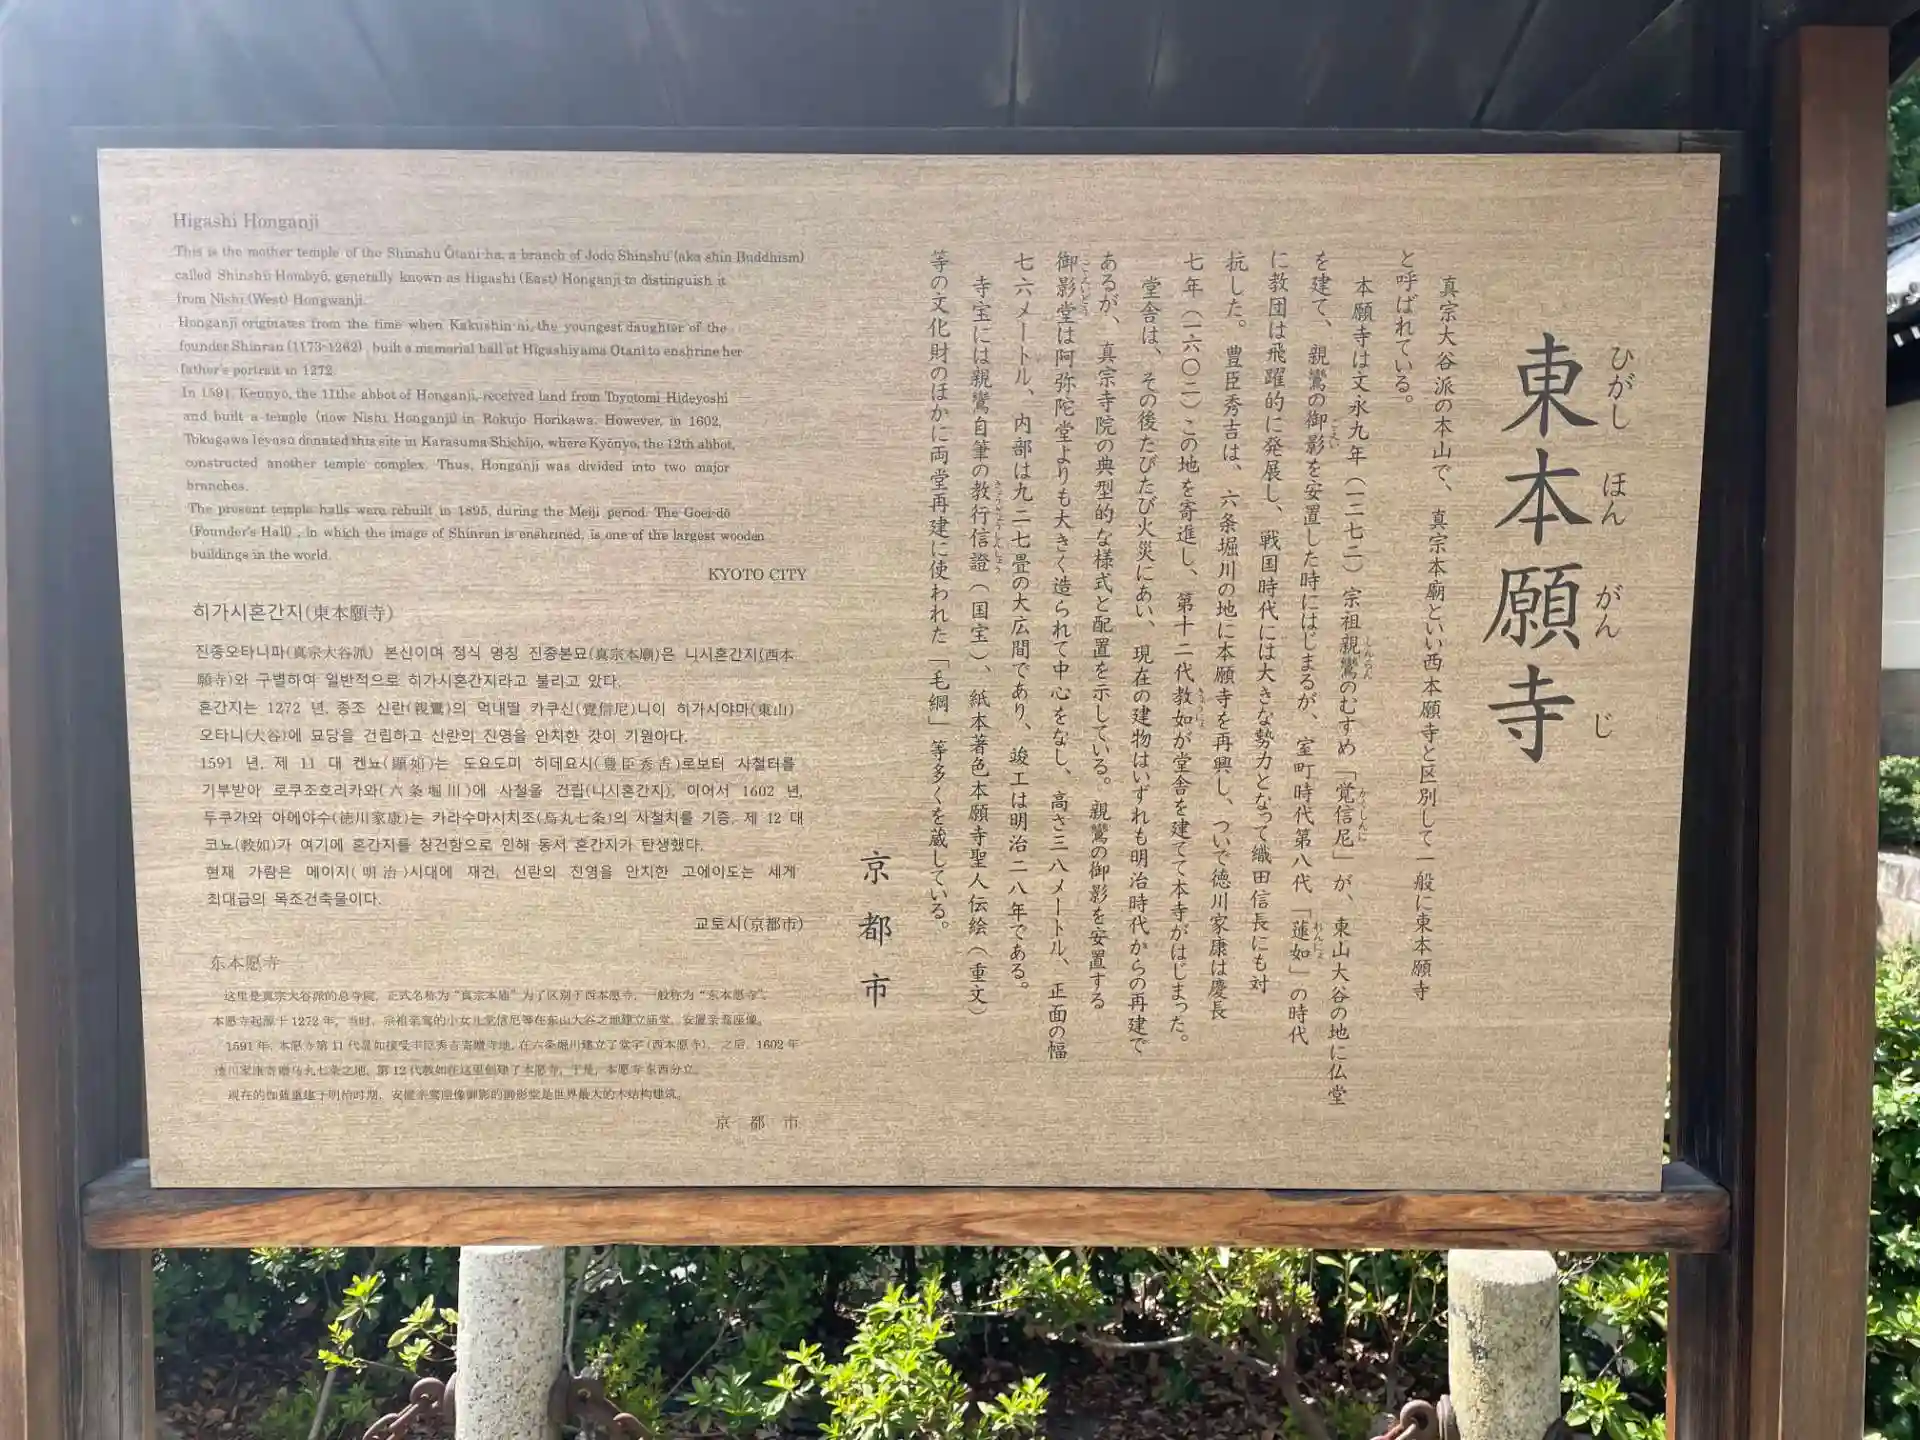 Higashi Honganji
This is the mother temple of the Shinshu Ōtani-ha, a branch of Jodo Shinshu (aka shin Buddhism)
called Shinshū Hombyō, generally known as Higashi (East) Honganji to distinguish it
from Nishi (West) Hongwanji.
Honganji originates from the time when Kakushin-ni, the youngest daughter of the
founder Shinran (1173-1262), built a memorial hall at Higashiyama Otani to enshrine her
father's portrait in 1272.
In 1591, Kennyo, the 11the abbot of Honganji, received land from Toyotomi Hideyoshi
and built a temple (now Nishi Honganji) in Rokujo Horikawa. However, in 1602,
Tokugawa Ieyasu donated this site in Karasuma Shichijo, where Kyōnyo, the 12th abbot,
constructed another temple complex. Thus, Honganji was divided into two major
branches.
The present temple halls were rebuilt in 1895, during the Meiji period. The Goei-dō
(Founder's Hall), in which the image of Shinran is enshrined, is one of the largest wooden
buildings in the world.
KYOTO CITY
히가시혼간지(東本願寺)
진종오타니파(真宗大谷派) 본신이며 정식 명칭 진종본묘(真宗本廟)은 니시혼간지(西本
願寺)와 구별하여 일반적으로 히가시혼간지라고 불리고 았다.
혼간지는 1272 년, 종조 신란(親鸞)의 먹내딸 카쿠신(覺信尼)니이 히가시야마(東山)
오타니(大谷)에 묘당을 건립하고 신란의 진영을 안치한 갓이 기원아다.
1591 년, 제 11 대 켄뇨(顯如)는 도요도미 히데요시(豊臣秀吉)로보터 사철터를
기부받아 로쿠조호리카와(六条堀川)에 사철을 건립(니시혼간지), 이어서 1602 년,
두쿠가와 아에야수(徳川家康)는 카라수마시치조(烏丸七条)의 사철치를 기증, 제 12 대
코뇨(教如)가 여기에 혼간지를 창건함으로 인해 동서 혼간지가 탄생했다.
현재 가람은 메이지(明治)시대에 재건, 선란의 진영을 안치한 고에이도는 세계
최대급의 목조건축물이다.
교토시(京都市)
东本愿寺
这里是真宗大谷派的总寺院，正式名称为“真宗本庙”为了区别于西本愿寺，一般称为“东本愿寺”。
本愿寺起源于1272年，当时，宗祖亲鸾的小女儿觉信尼等在东山大谷之地建立庙堂，安置亲鸾座像。
1591年，本愿寺第11代显如接受丰臣秀吉寄赠寺地，在六条堀川建立了堂宇(西本愿寺)，之后，1602年
德川家康寄赠乌丸七条之地，第12代教如在这里创建了本愿寺，于是，本愿寺东西分立。
现在的伽蓝重建于明治时期，安置亲鸾座像御影的御影堂是世界最大的木结构建筑。
京都市
東本願寺
ひがし ほん がん じ
真宗大谷派の本山で、真宗本廟といい西本願寺と区別して一般に東本願寺
と呼ばれている。
本願寺は文永九年（一二七二）宗祖親鸞のむすめ「覚信尼」が、東山大谷の地に仏堂
を建て、親鸞の御影を安置した時にはじまるが、室町時代第八代「蓮如」の時代
に教団は飛躍的に発展し、戦国時代には大きな勢力となって織田信長にも対
抗した。豊臣秀吉は、六条堀川の地に本願寺を再興し、ついで徳川家康は慶長
七年（一六〇二）この地を寄進し、第十二代教如が堂舎を建てて本寺がはじまった。
堂舎は、その後たびたび火災にあい、現在の建物はいずれも明治時代からの再建で
あるが、真宗寺院の典型的な様式と配置を示している。親鸞の御影を安置する
御影堂は阿弥陀堂よりも大きく造られて中心をなし、高さ三八メートル、正面の幅
七六メートル、内部は九二七畳の大広間であり、竣工は明治二八年である。
寺宝には親鸞自筆の教行信證（国宝）、紙本著色本願寺聖人伝絵（重文）
等の文化財のほかに両堂再建に使われた「毛綱」等多くを蔵している。
京都市